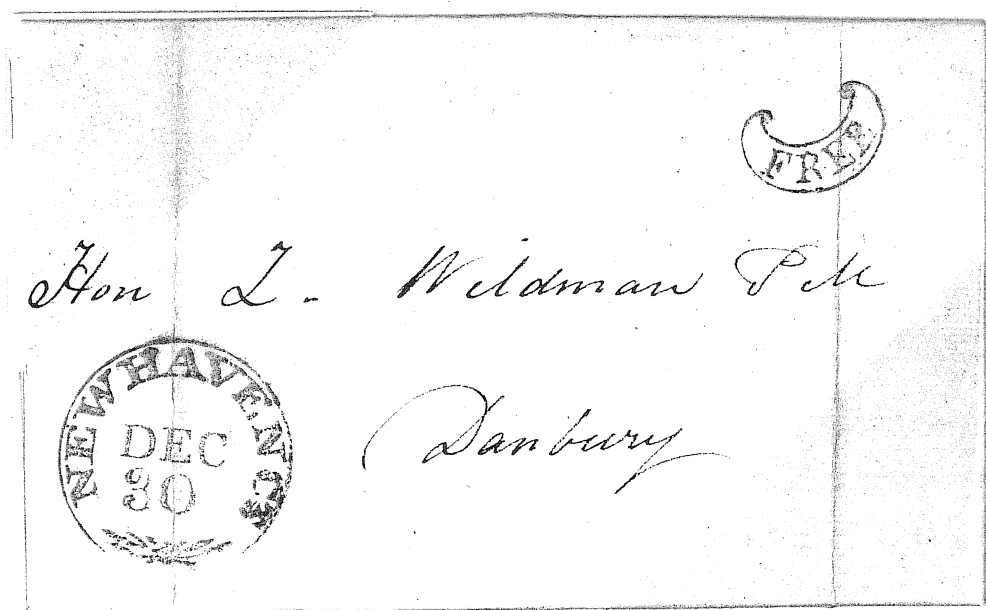 FREE
Hon Z. Wildman P M
NEW HAVEN Ct
DEC
30
Danbury